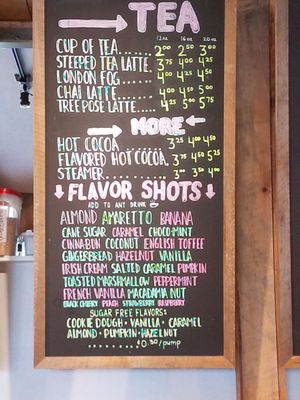 TEA
12oz 16oz 20oz
CUP OF TEA..... 2⁰⁰ 2⁵⁰ 3⁰⁰
STEEPED TEA LATTE. 3⁷⁵ 4
LONDON FOG...... 4
CHAI LATTE..... 4⁰⁰ 4⁵⁰
TREE POSE LATTE.... 4²⁵ 5⁰⁰ 5⁷⁵
MORE
HOT COCOA...... 3²⁵ 4⁰⁰ 4⁵⁰
FLAVORED HOT COCOA. 3⁷⁵ 4⁵⁰ 5²⁵
STEAMER......... 3⁰⁰ 3⁵⁰ 4⁵⁰
FLAVOR SHOTS
ADD TO ANY DRINK
ALMOND AMARETTO BANANA
CANE SUGAR CARAMEL CHOCO-MINT
CINNABUN COCONUT ENGLISH TOFFEE
GINGERBREAD HAZELNUT VANILLA
IRISH CREAM SALTED CARAMEL PUMPKIN
TOASTED MARSHMALLOW PEPPERMINT
FRENCH VANILLA MACADAMIA NUT
BLACK CHERRY PEACH STRAWBERRY RASPBERRY
SUGAR FREE FLAVORS:
COOKIE DOUGH • VANILLA • CARAMEL
ALMOND • PUMPKIN • HAZELNUT
......... $0.50/pump